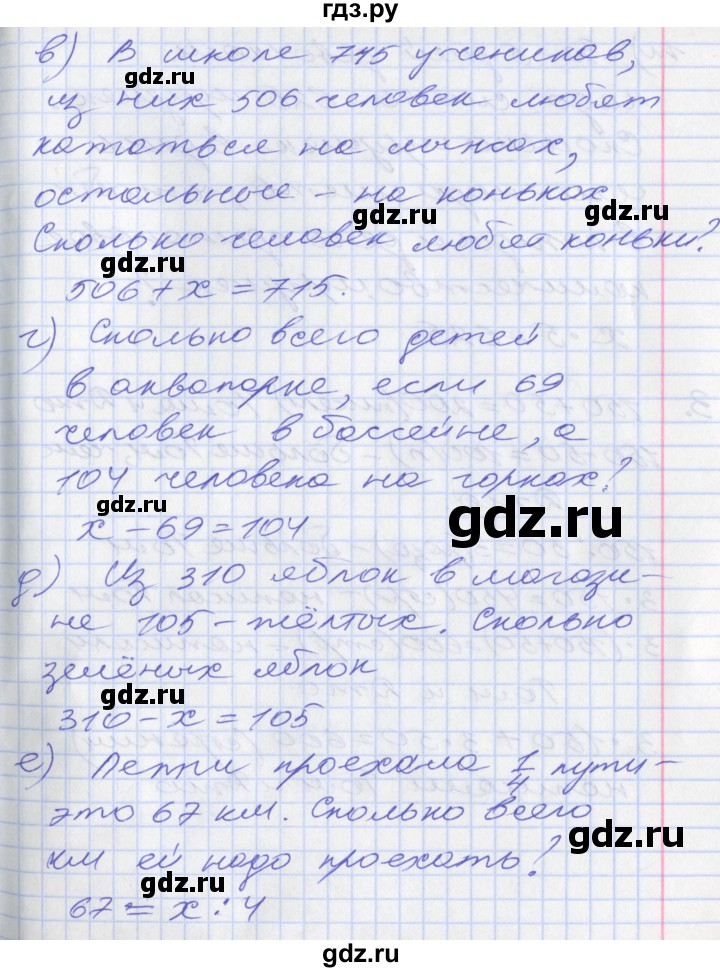 гдз.ру
в) В школе 715 учеников,
gdz.ru
из них 506 человек любят
кататься на лыжах,
gdz.ru
остальные – на коньках
gdz.ru
Сколько человек любят коньки?
gdz.ru
506 + x = 715.
г) Сколько всего детей
gdz.ru
в аквапарке, если 69
человек в бассейне, а
gdz.ru
104 человека на горках?
gdz.ru
x – 69 = 104
д) Из 310 яблок в магази-
gdz.ru
не 105 – жёлтых. Сколько
gdz.ru
зелёных яблок
gdz.ru
310 – x = 105
е) Пеппи проехала 1/4 пути –
gdz.ru
это 67 км. Сколько всего
gdz.ru
км ей надо проехать?
gdz.ru
67 = x : 4
gdz.ru